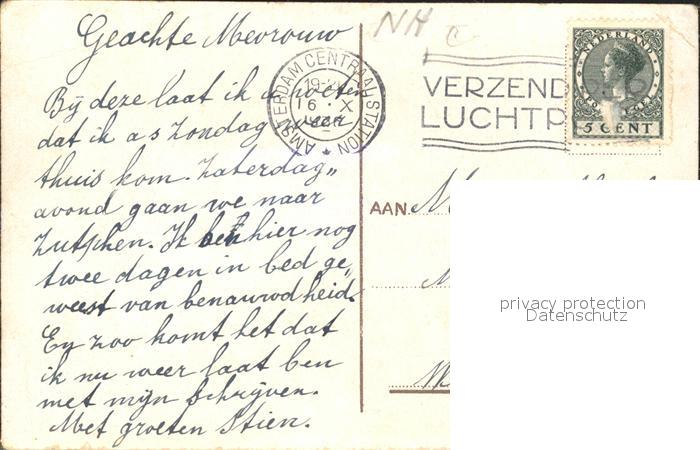 Geachte Mevrouw
NH
C
Bij deze laat ik u weten
dat ik a s Zondag weer
thuis kom. Zaterdag„
avond gaan we naar
Zutphen. Ik heb hier nog
twee dagen in bed ge„
weest van benauwdheid.
En zoo komt het dat
ik nu weer laat ben
met mijn schrijven.
Met groeten Stien.
AMSTERDAM CENTRAAL STATION
16 X
VERZEND
LUCHTP
NEDERLAND
5 CENT
AAN
privacy protection
Datenschutz